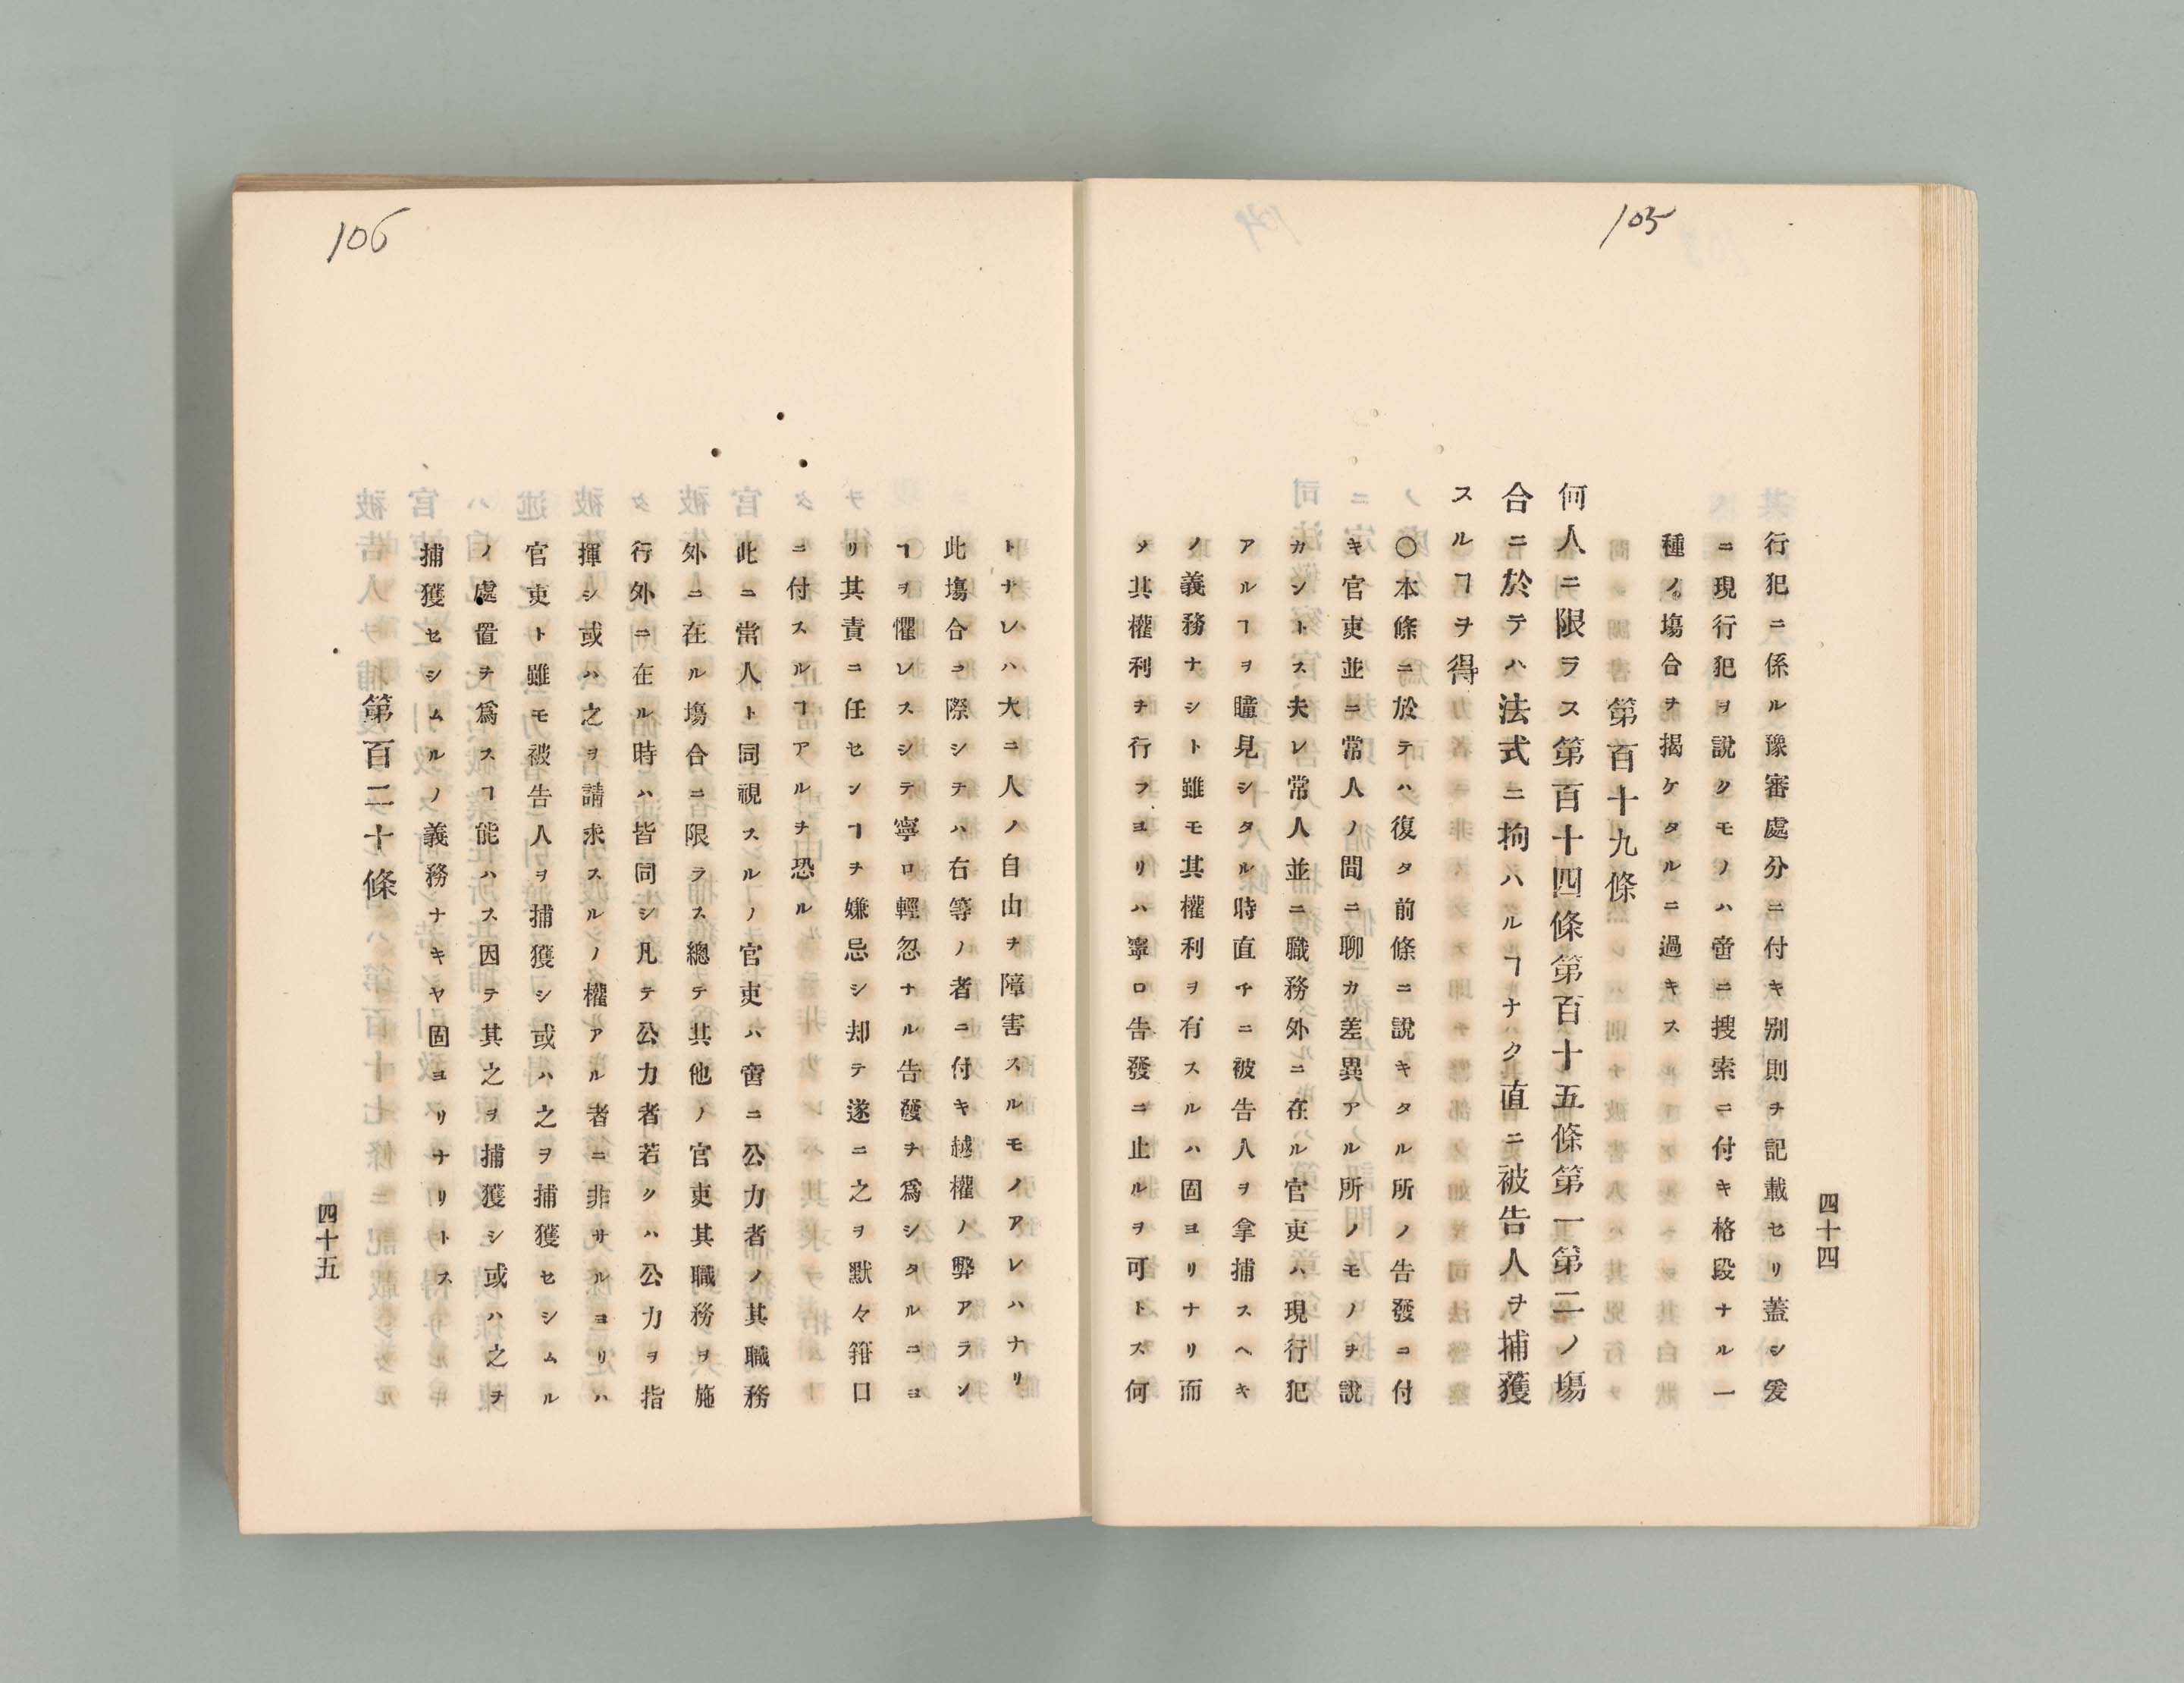 105
四十四
行犯ニ係ル豫審處分ニ付キ別則ヲ記載セリ蓋シ爰
ニ現行犯ヲ說クモノハ啻ニ搜索ニ付キ格段ナル一
種ノ塲合ヲ揭ケタルニ過キス
第百十九條
何人ニ限ラス第百十四條第百十五條第一第二ノ塲
合ニ於テハ法式ニ拘ハルヿナク直ニ被告人ヲ捕獲
スルヿヲ得
〇本條ニ於テハ復タ前條ニ說キタル所ノ告發ニ付
キ官吏並ニ常人ノ間ニ聊カ差異アル所ノモノヲ說
カントス夫レ常人並ニ職務外ニ在ル官吏ハ現行犯
アルヿヲ瞳見シタル時直チニ被告人ヲ拿捕スヘキ
ノ義務ナシト雖モ其權利ヲ有スルハ固ヨリナリ而
メ其權利ヲ行フヨリハ寧ロ告發ニ止ルヲ可トス何
106
トナレハ大ニ人ノ自由ヲ障害スルモノアレハナリ
此塲合ニ際シテハ右等ノ者ニ付キ越權ノ弊アラン
ヿヲ懼レスシテ寧ロ輕忽ナル告發ヲ爲シタルニヨ
リ其責ニ任センヿヲ嫌忌シ却テ遂ニ之ヲ默々箝口
ニ付スルヿアルヲ恐ル
此ニ當人ト同視スルノ官吏ハ啻ニ公力者ノ其職務
外ニ在ル塲合ニ限ラス總テ其他ノ官吏其職務ヲ施
行外ニ在ル時ハ皆同シ凡テ公力者若クハ公力ヲ指
揮シ或ハ之ヲ請求スルノ權アル者ニ非サルヨリハ
官吏ト雖モ被告人ヲ捕獲シ或ハ之ヲ捕獲セシムル
ノ處置ヲ爲スヿ能ハス因テ其之ヲ捕獲シ或ハ之ヲ
捕獲セシムルノ義務ナキヤ固ヨリナリトス
第百二十條
四十五